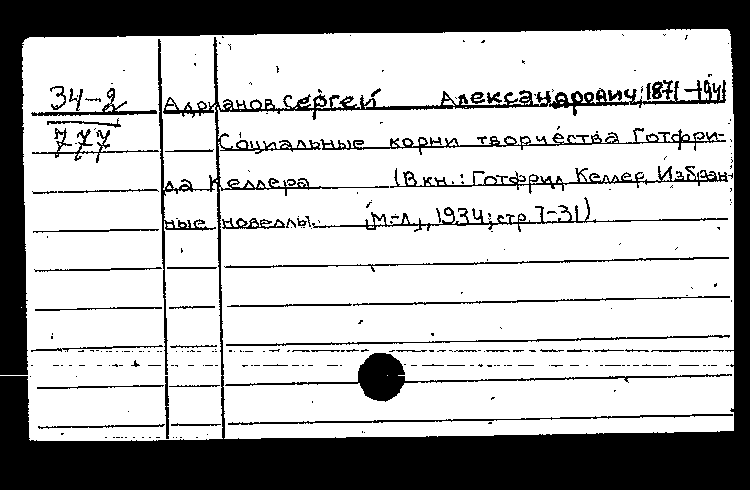 34-2
777
Адрианов, Сергей Александрович, 1871-1941
Социальные корни творчества Готфри-
да Келлера (В кн.: Готфрид Келлер, Избран-
ные новеллы. [М.-Л.], 1934; стр. 7-31).